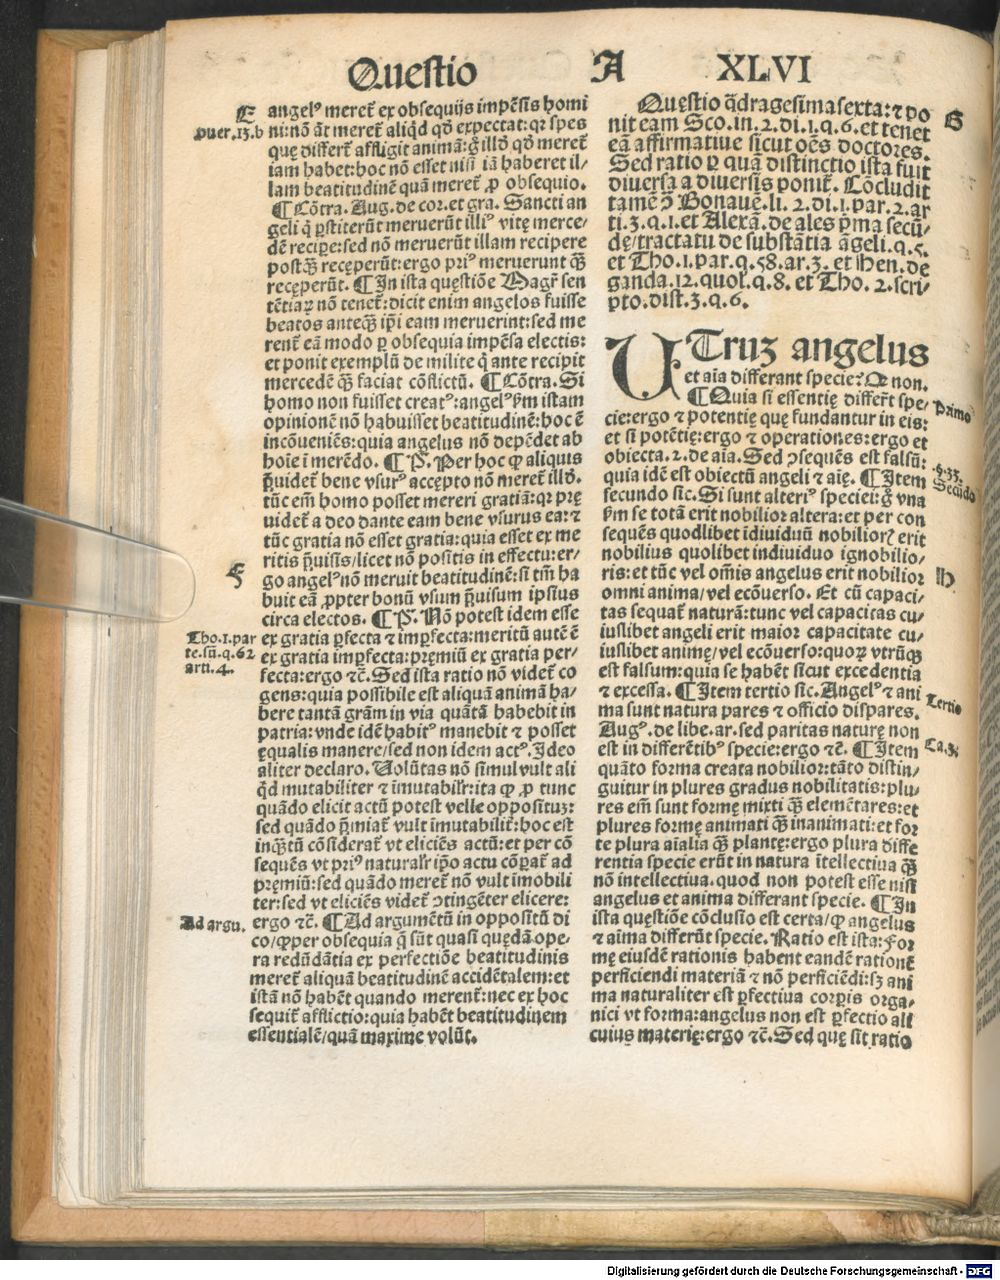 Questio A XLVI
E
puer.13.b
angelꝰ mereť ex obsequijs impẽsis homi
ni:nõ aũt mereť aliqd qđ expectat:qꝛ spes
quę differt̃ affligit animã:g̊ illđ qđ mereť
iam habet:hoc nõ esset nisi iã haberet il/
lam beatitudinẽ quã mereť ꝓ obsequio.
¶Cõtra.Aug.de cor.et gra. Sancti an
geli q̃ ꝑstiterũt meruerũt illiꝰ vitę merce-
dẽ recipe:sed nõ meruerũt illam recipere
postq̃ꝫ recęperũt:ergo priꝰ meruerunt q̃ꝫ
recęperũt. ¶In ista questiõe Magr̃ sen
tẽtiaꝝ nõ teneť:dicit enim angelos fuisse
beatos anteq̃ꝫ ip̃i eam meruerint:sed me
renť eã modo ꝑ obsequia impẽsa electis:
et ponit exemplũ de milite q̃ ante recipit
mercedẽ q̃ꝫ faciat cõflictũ. ¶Cõtra. Si
homo non fuisset creatꝰ:angelꝰ ẜm istam
opinionẽ nõ habuisset beatitudinẽ:hoc ẽ
incõueniẽs:quia angelus nõ depẽdet ab
hoĩe ĩ merẽdo. ¶P̃. Per hoc ꝙ aliquis
p̃uideť bene vsurꝰ accepto nõ mereť illđ.
tũc em̃ homo posset mereri gratiã:qꝛ prę
uideť a deo dante eam bene vsurus ea:⁊
tũc gratia nõ esset gratia:quia esset ex me
ritis p̃uisis/licet nõ positis in effectu:er/
go angelꝰ nõ meruit beatitudinẽ:si tm̃ ha
buit eã ꝓpter bonũ vsum p̃uisum ipsius
circa electos. ¶P̃. Nõ potest idem esse
Tho.1.par
te.sũ.q.62
arti.4.
ex gratia ꝑfecta ⁊ imꝑfecta:meritũ autẽ ẽ
ex gratia imꝑfecta:pręmiũ ex gratia per/
fecta:ergo ⁊c̃. Sed ista ratio nõ videť co
gens:quia possibile est aliquã animã ha/
bere tantã grãm in via quãtã habebit in
patria:vnde idẽ habitꝰ manebit ⁊ posset
ęqualis manere/sed non idem actꝰ. Ideo
aliter declaro. Volũtas nõ simul vult ali
q̃d mutabiliter ⁊ ĩmutabilr̃:ita ꝙ ꝓ tunc
quãdo elicit actũ potest velle oppositũ:
sed quãdo p̃miať vult ĩmutabiliť:hoc est
inq̃ꝫtũ cõsiderať vt eliciẽs actũ:et per cõ
sequẽs vt priꝰ naturalr̃ ip̃o actu cõꝑať ad
pręmiũ:sed quãdo mereť nõ vult ĩmobili
ter:sed vt eliciẽs videť ↄtingẽter elicere:
Ad argu.
ergo ⁊c̃. ¶Ad argumẽtũ in oppositũ di
co/ꝙ per obsequia q̃ sũt quasi quędã ope-
ra redũdãtia ex perfectiõe beatitudinis
mereť aliquã beatitudinẽ accidẽtalem:et
istã nõ habẽt quando merenť:nec ex hoc
sequiť afflictio:quia habẽt beatitudinem
essentialẽ/quã maxime volũt.
Questio q̃dragesimasexta:⁊ po
nit eam Sco.in.2.di.1.q.6.et tenet
eã affirmatiue sicut oẽs doctores.
Sed ratio ꝑ quã distinctio ista fuit
diuersa a diuersis poniť. Cõcludit
tamẽ ↄ̃ Bonauẽ.li.2.di.1.par.2.ar
ti.3.q.1.et Alexã.de ales p̃ma secũ/
dę/tractatu de substãtia ãgeli.q.5.
et Tho.1.par.q.58.ar.3. et Hen.de
ganda.12.quol.q.8. et Tho.2.scri/
pto.dist.3.q.6.
G
UTruꝫ angelus
et aĩa differant specie? Ꝙ non.
Primo
¶Quia si essentię differũt spe/
cie:ergo ⁊ potentię quę fundantur in eis:
et si potẽtię:ergo ⁊ operationes:ergo et
obiecta.2.de aĩa. Sed ↄsequẽs est falsũ:
quia idẽ est obiectũ angeli ⁊ aĩę. ¶Item
Secũdo
secundo sic. Si sunt alteriꝰ speciei:g̊ vna
ẜm se totã erit nobilior altera:et per con
sequẽs quodlibet ĩdiuiduũ nobilioris erit
nobilius quolibet indiuiduo ignobilio/
H
ris:et tũc vel om̃is angelus erit nobilior
omni anima/vel ecõuerso. Et cũ capaci/
tas sequať naturã:tunc vel capacitas cu/
iuslibet angeli erit maior capacitate cu/
iuslibet animę/vel ecõuerso:quoꝝ vtrũqꝫ
est falsum:quia se habẽt sicut excedentia
⁊ excessa. ¶Item tertio sic. Angelꝰ ⁊ ani
Tertio
ma sunt natura pares ⁊ officio dispares.
Augꝰ.de libe.ar.sed paritas naturę non
est in differẽtibꝰ specie:ergo ⁊c̃. ¶Item
quãto forma creata nobilior:tãto distin/
guitur in plures gradus nobilitatis:plu/
res em̃ sunt formę mixti q̃ꝫ elemẽtares:et
plures formę animati q̃ꝫ inanimati:et for
te plura aĩalia q̃ꝫ plantę:ergo plura diffe
rentia specie erũt in natura ĩtellectiua q̃ꝫ
nõ intellectiua.quod non potest esse nisi
angelus et anima differant specie. ¶In
ista questiõe cõclusio est certa/ꝙ angelus
⁊ aĩma differũt specie. Ratio est ista:for
mę eiusdẽ rationis habent eandẽ rationẽ
perficiendi materiã ⁊ nõ perficiẽdi:sꝫ ani
ma naturaliter est ꝑfectiua corꝑis orga/
nici vt forma:angelus non est ꝑfectio ali
cuius materię:ergo ⁊c̃. Sed quę sit ratio
Digitalisierung gefördert durch die Deutsche Forschungsgemeinschaft - DFG